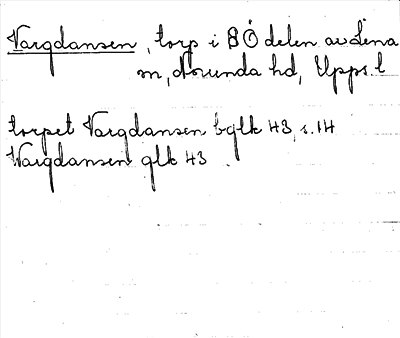 Vargdansen, torp i SÖ delen av Lena
sn, Norunda hd, Upps. l
torpet Vargdansen bglk 43, s. 14
Vargdansen glk 43